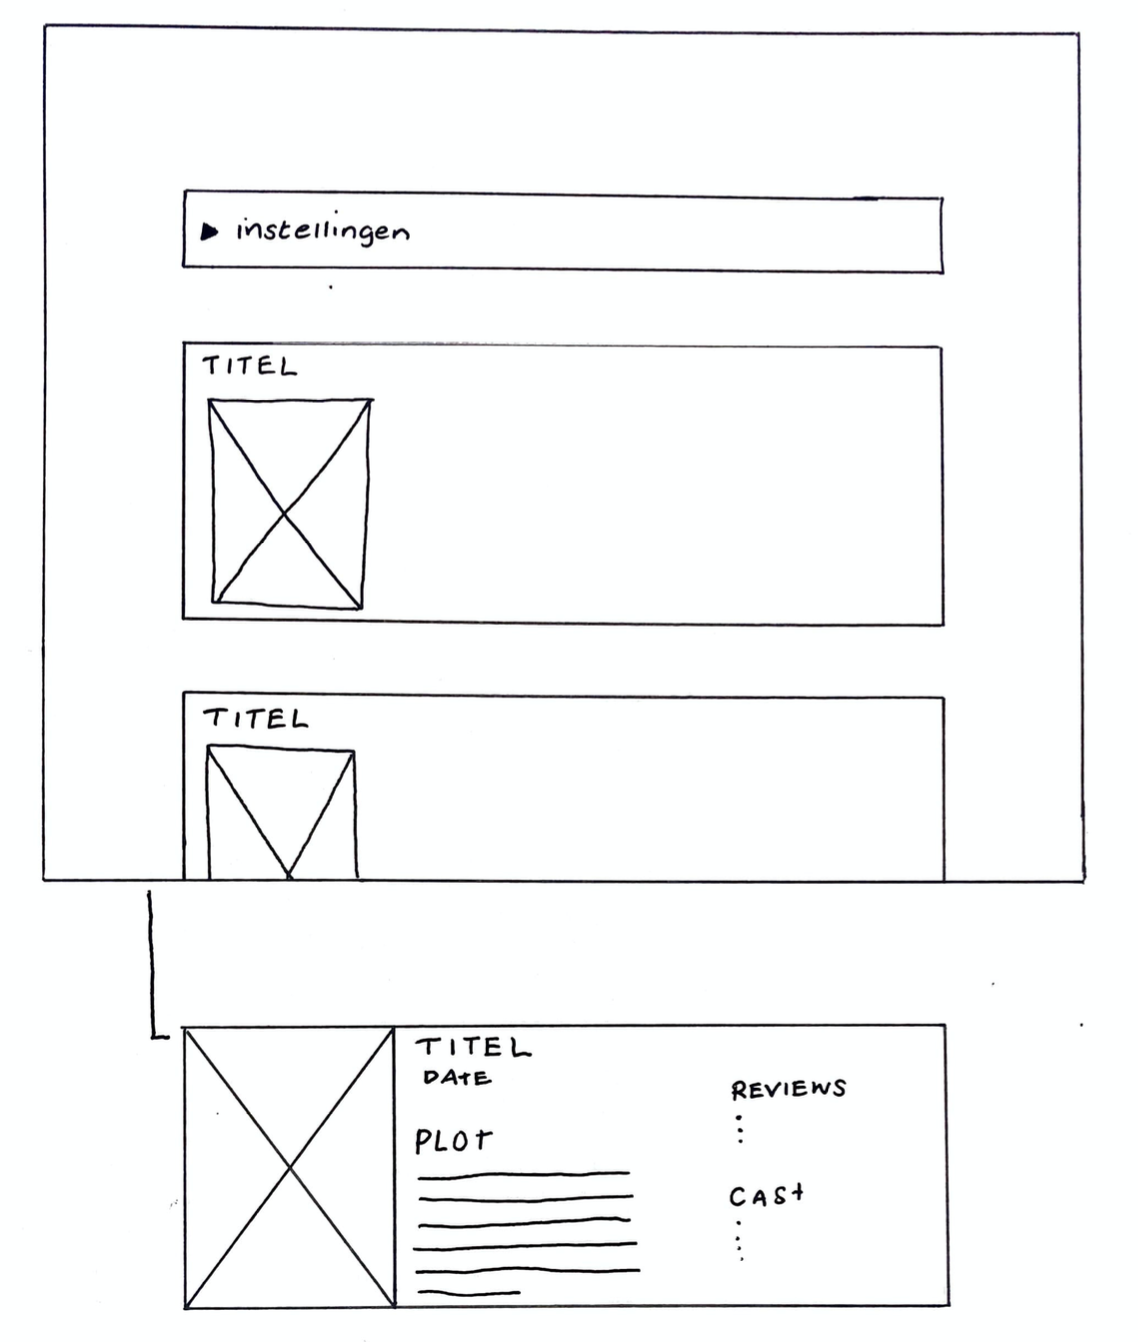 instellingen
TITEL
TITEL
TITEL
DATE
PLOT
REVIEWS
CAST